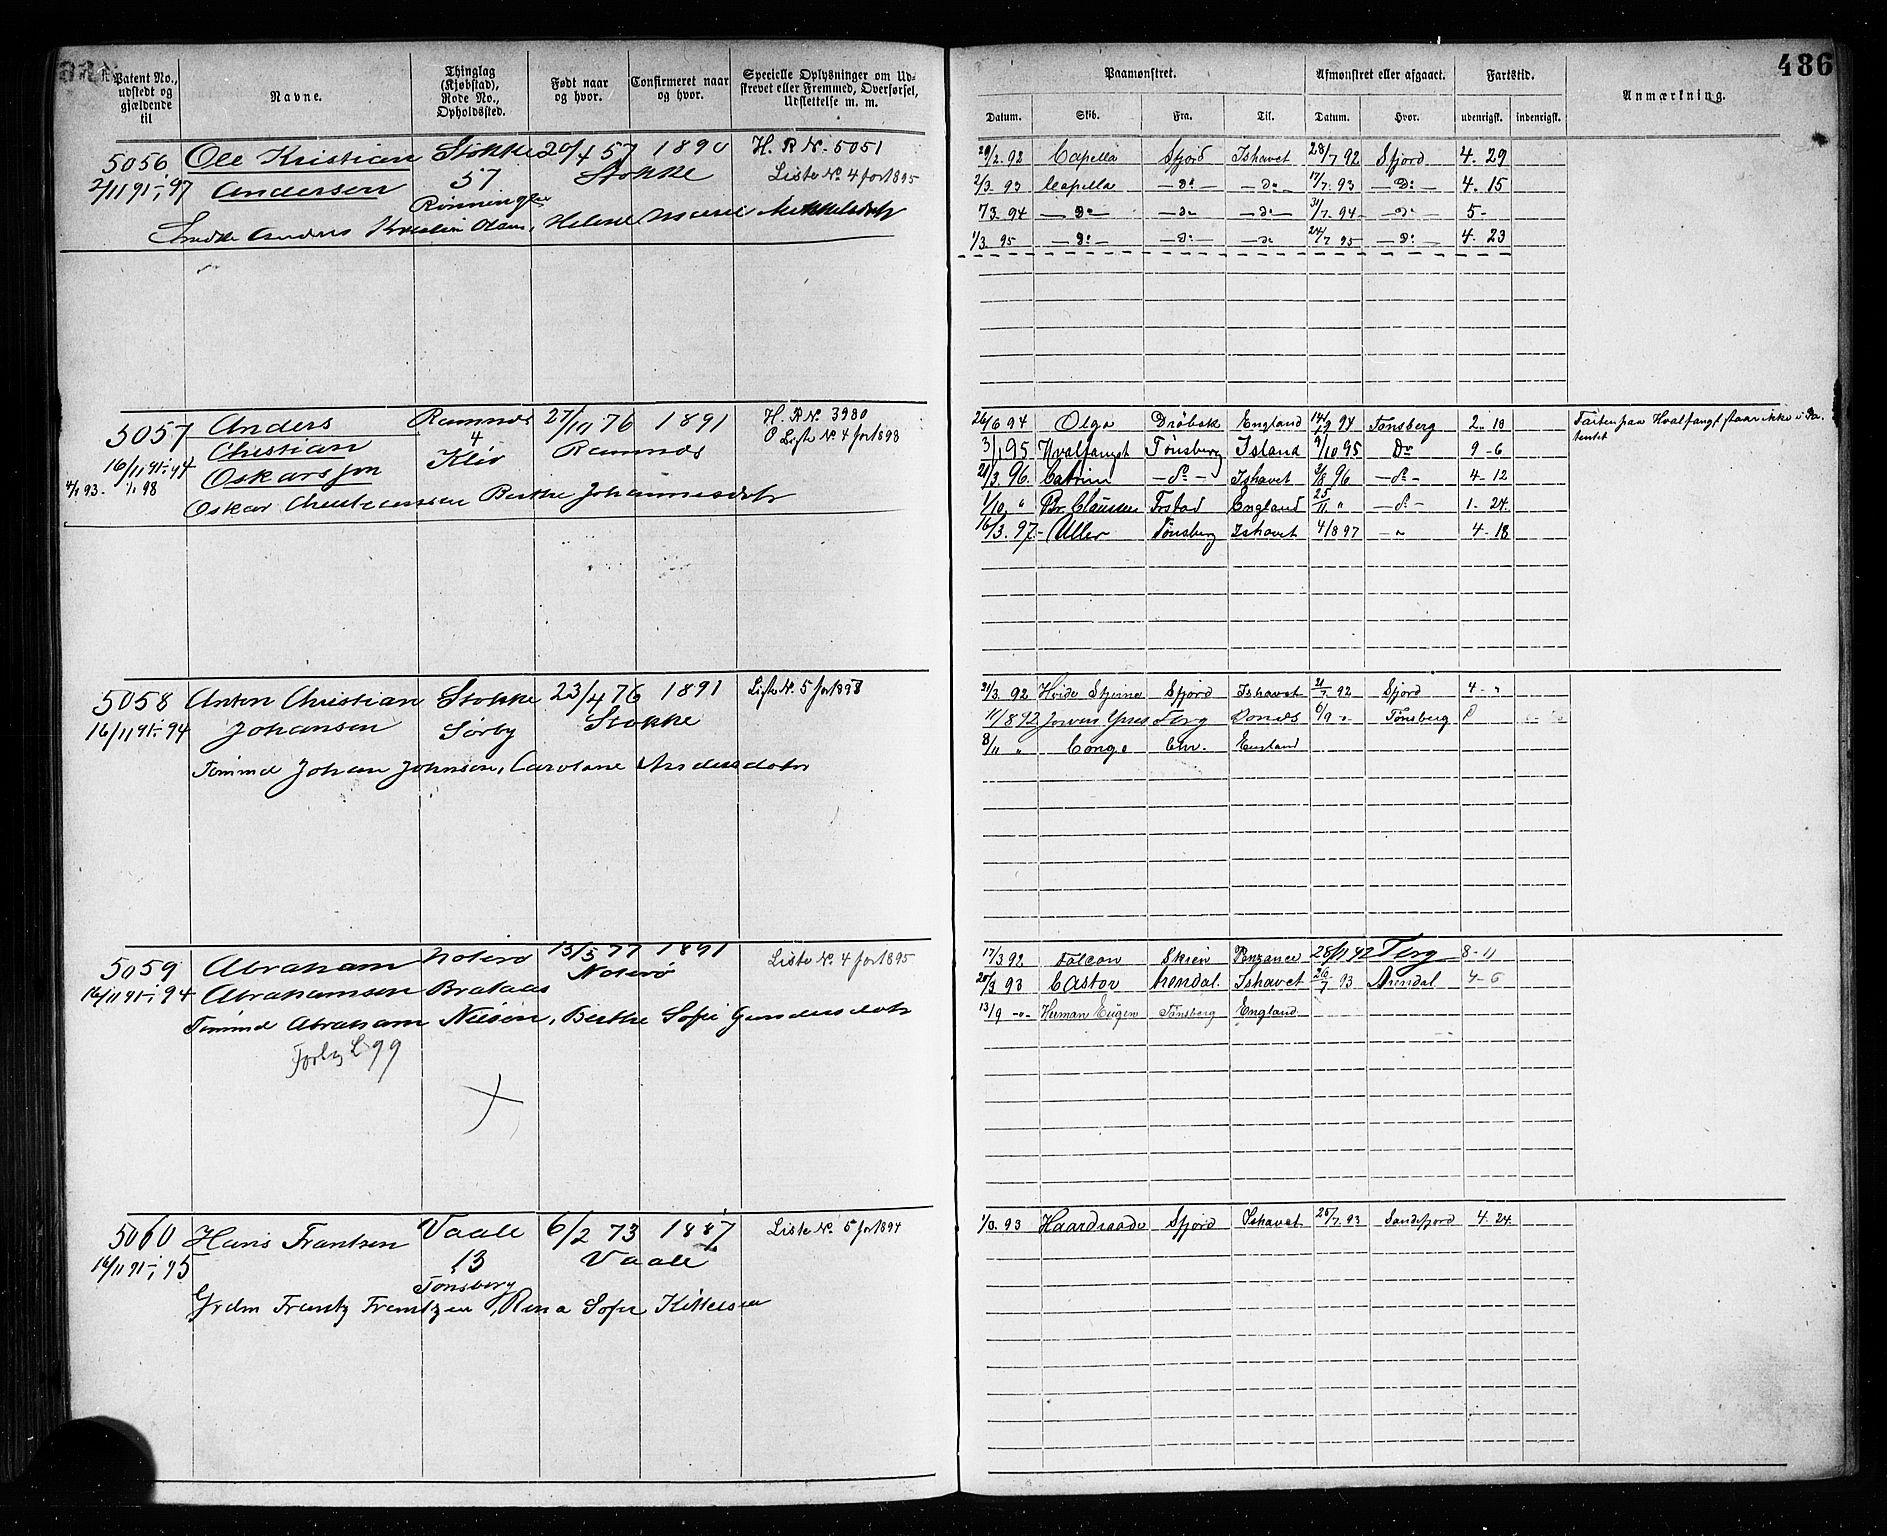 486
Patent No., udstedt og gjældende til
Navne.
Thinglag (Kjøbstad), Rode No., Opholdssted.
Født naar og hvor.
Confirmeret naar og hvor.
Specielle Oplysninger om Udskrevet eller Fremmed, Overførsel, Udslettelse m. m.
Paamønstret.
Afmønstret eller afgaaet.
Fartstid.
Anmærkning.
Datum. Skib. Fra. Til. Datum. Hvor. udenrigsk. indenrigsk.
5056 Ole Kristian Stokke 20/4 57 1890 H. R No. 5051
2/11 91-, 97 Andersen 57 Stokke Liste No. 4 for 1895
Anders Olsen, Helene Marie
29/2. 92 Capella Sfjord Ishavet 28/7 92 Sfjord 4. 29
2/3. 93 Capella - Do - - Do - 17/7. 93 - Do - 4. 15
73. 94 - Do - - Do - - Do - 31/7. 94 - Do - 5 -
1/3. 95 - Do - - Do - - Do 24/7 95 - Do - 4. 23
5057 Anders Ramnæs 27/11 76 1891 H. R No. 3980
Christian 4 Ramnæs O Liste No 4 for 1898
16/11 91-, 94 Oskarssen Klev
4/1 93. 1/1 98
Oskar Berthe Johannesdatr
26/6 94 Olga Drøbak England 14/9 94 Tønsberg 2. 10 paa Hvalfangst staar ikke i Pa-
tentet
3/1 95 Hvalfangst Tønsberg Island 9/10 95 Do 9 - 6
21/3. 96. Catrine - do - Ishavet 3/8 96 - do - 4 - 12
1/10 " Br. Clausen Frstad England 25/11 " - do - 1. 24
16/3. 97. - Uller Tønsberg Ishavet 4/8 97 - " 4 - 18
5058 Anton Christian Stokke 23/4 76 1891 Liste No. 5 for 1898
16/11 91-, 94 Johansen Sørby Stokke
Tømmd Johan Johnsen, Caroline Andersdatr
21/3. 92 Hvide Stjerne Sfjord Ishavet 21/7 92 Sfjord 4 - "
11/8 92 Tbrg 6/9 " Tønsberg
8/11 " Congo Chr. England
5059 Abraham Noterø 13/3 77 1891 Liste No. 4 for 1895
16/11 91-, 94 Abrahamsen Brataas Noterø
Tømmd Abraham Nilsen, Berthe Sofie Gundersdatr
99
17/3 92 Falcon Skien Penzance 28/11 92 Tbrg 8 - 11
25/3 93 Castor Arendal. Ishavet 26/7 93 Arendal 4 - 6
13/9 -"- Herman Eugen Tønsberg England
5060 Hans Frantsen Vaale 6/2 73 1887 Liste No. 5 for 1894
16/11 91-, 95 13 Vaale
Tønsberg
Grdm Frantz Frantzen, Rina Sofie Kittelsen
1/3. 93 Haardraade Sfjord Ishavet 25/7. 93 Sandefjord 4. 24.